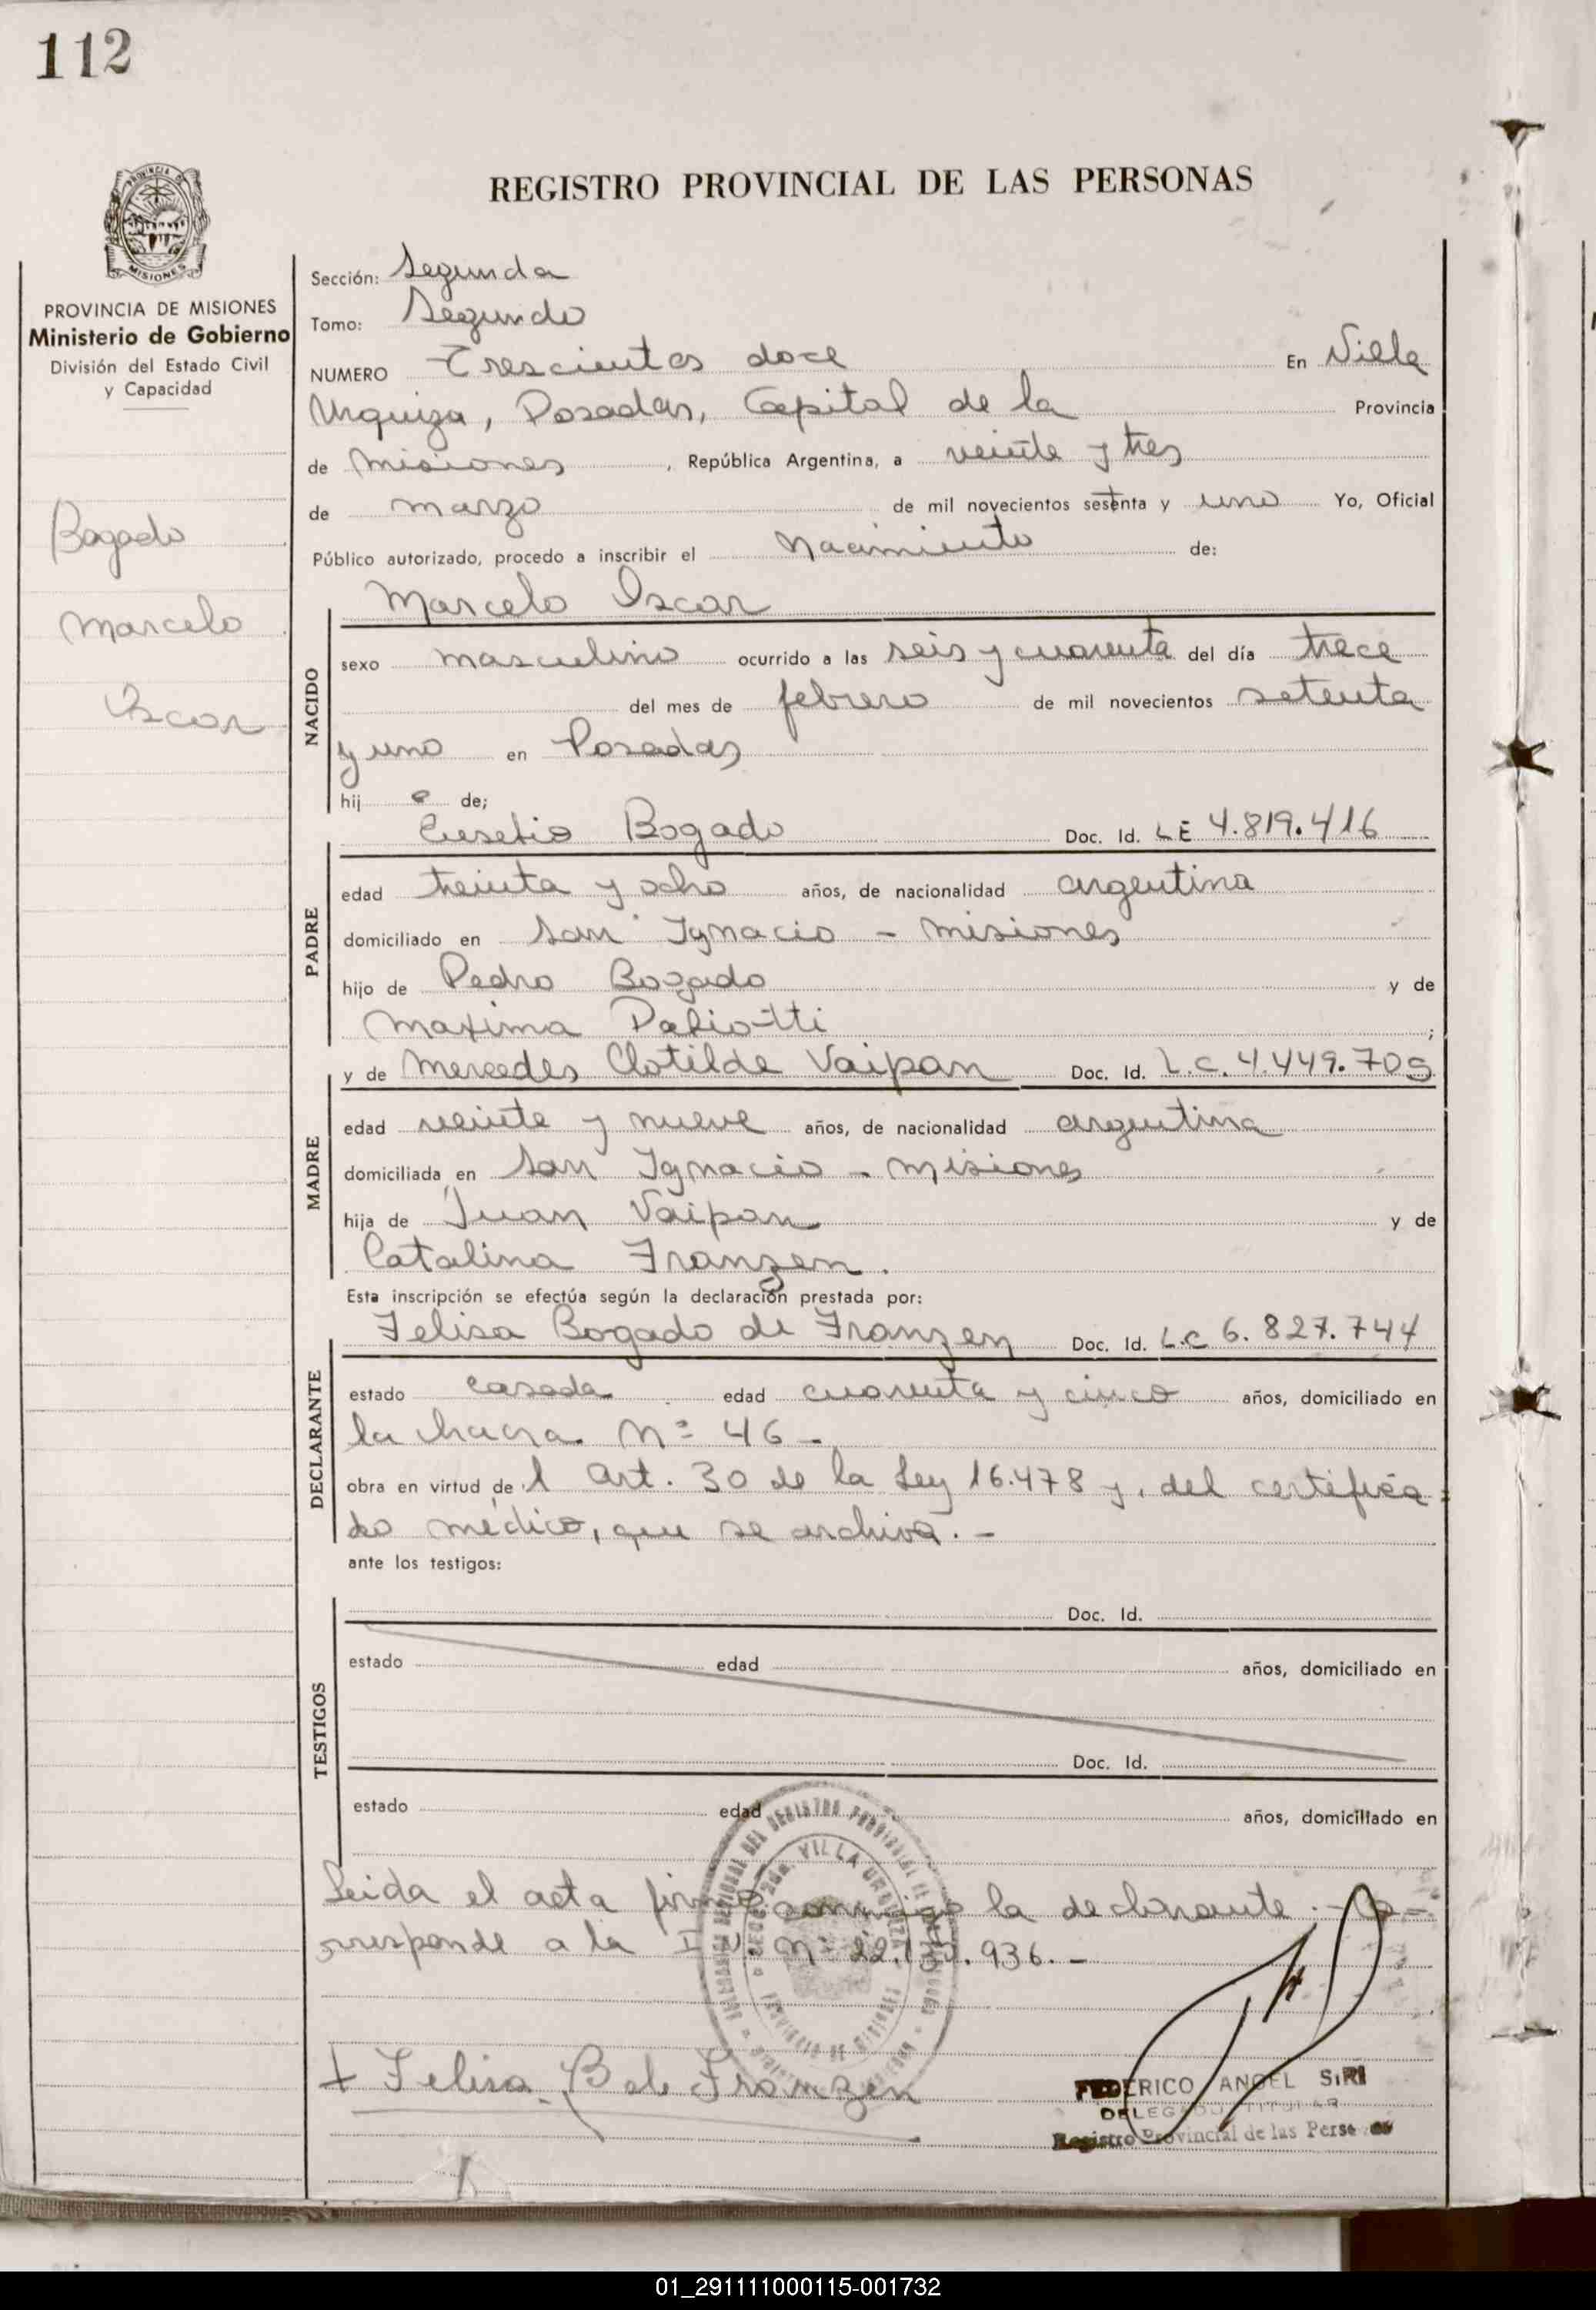 112
REGISTRO PROVINCIAL DE LAS PERSONAS
PROVINCIA DE MISIONES
Ministerio de Gobierno
División del Estado Civil
y Capacidad
Bogado
Marcelo
Oscar
Sección: Segunda
Tomo: Segundo
NUMERO Trescientos doce En Villa
Urquiza, Posadas, Capital de la Provincia
de Misiones, República Argentina, a veinte y tres
de marzo de mil novecientos setenta y uno Yo, Oficial
Público autorizado, procedo a inscribir el nacimiento de:
Marcelo Oscar
NACIDO
sexo masculino ocurrido a las seis y cuarenta del día trece
del mes de febrero de mil novecientos setenta
y uno en Posadas
hij o de;
Eusebio Bogado Doc. Id. L E 4.819.416
PADRE
edad treinta y ocho años, de nacionalidad argentina
domiciliado en San Ignacio - Misiones
hijo de Pedro Bogado y de
Maxima ;
y de Mercedes Clotilde Vaipan Doc. Id. L.C. 4.449.709
MADRE
edad veinte y nueve años, de nacionalidad argentina
domiciliada en San Ignacio - Misiones
hija de Juan Vaipan y de
Catalina Franzen.
Esta inscripción se efectúa según la declaración prestada por:
Felisa Bogado de Franzen Doc. Id. L.C 6.827.744
DECLARANTE
estado casada edad cuarenta y cinco años, domiciliado en
la chacra Nº 46 -
obra en virtud de l Art. 30 de la Ley 16.478 y, del certifica=
do médico, que se archiva. -
ante los testigos:
TESTIGOS
Doc. Id.
estado edad años, domiciliado en
Doc. Id.
estado edad años, domiciliado en
Leida el acta firma conmigo la declarante. - Co=
rresponde a la Nº 936. -
VILLA URQUIZA
+ Felisa B de Franzen
FEDERICO ANGEL SIRI
DELEGADO TITULAR
Registro Provincial de las Personas
01_291111000115-001732